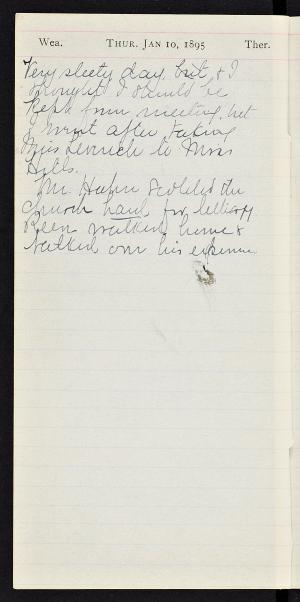 Wea. THUR. JAN 10, 1895 Ther.
Very sleety day, but & I
thought I should be
kept from meeting, but
I went after taking
Miss to Miss
Hills.
Mr. Hahn scolded the
church hard for
Been walked home &
talked over his